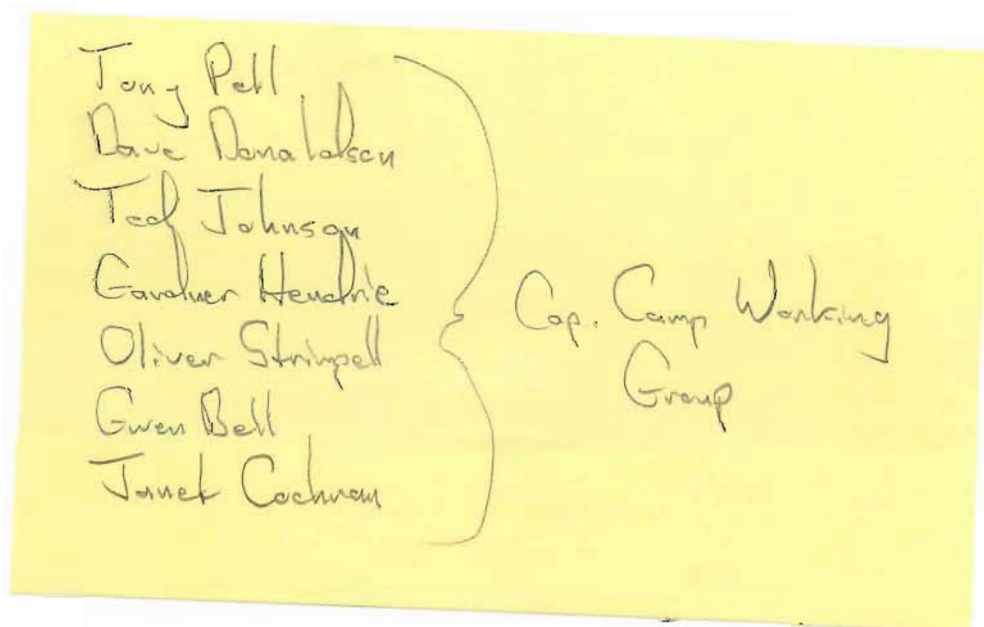 Tony Pell
Dave Donaldson
Ted Johnson
Gardner Hendrie
Oliver Strimpell
Gwen Bell
Janet Cochran
Cap. Camp Working
Group